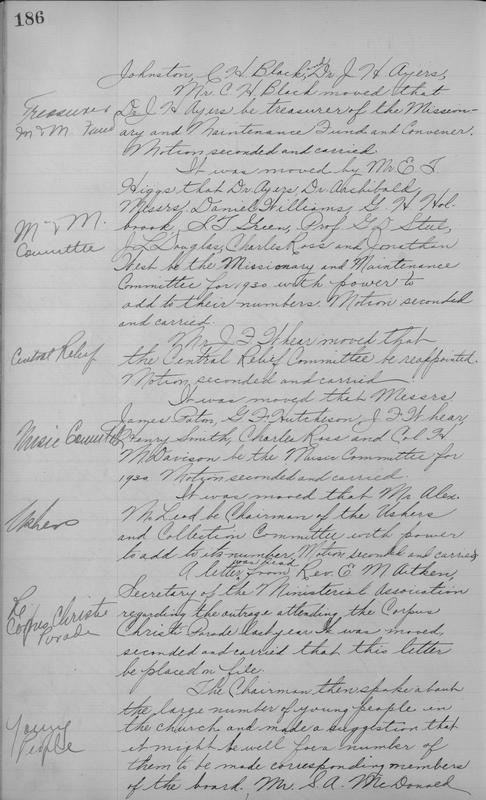 186
Johnston, C. H. Black, Dr J. H. Ayers,
Mr. C. H. Black moved that
Treasurer
M & M Fund
Dr J. H Ayers be treasurer of the Mission-
ary and Maintenance Fund and Convener.
Motion seconded and carried
It was moved by Mr E. T.
Higgs that Dr Ayers, Dr Archibald
Messrs, Daniel Williams, G. H Hol-
M & M.
Committee
brook, S T Green, Prof G D Steel,
J. L Douglas, Charles Ross and Jonathan
West be the Missionary and Maintenance
Committee for 1930 with power to
add to their numbers. Motion seconded
and carried.
Mr. J F Whear moved that
Central Relief
the Central Relief Committee be reappointed.
Motion seconded and carried
It was moved that Messrs
James Paton, G F Hutcheson, J. F Whear,
Music Committee
Henry Smith, Charles Ross and Col H
McDavison be the Music Committee for
1930 Motion seconded and carried.
It was moved that Mr Alex.
Ushers
McLeod be Chairman of the Ushers
and Collection Committee with power
to add to its number. Motion seconded and carried
A letter was read from Rev. E M Aitken,
Re
Corpus Christi
Parade
Secretary of the Ministerial Association
regarding the outrage attending the Corpus
Christi Parade last year It was moved,
seconded and carried that this letter
be placed on file.
The Chairman then spoke about
the large number of young people in
Young
People
the church and made a suggestion that
it might be well for a number of
them to be made corresponding members
of the board. Mr. S A. McDonald